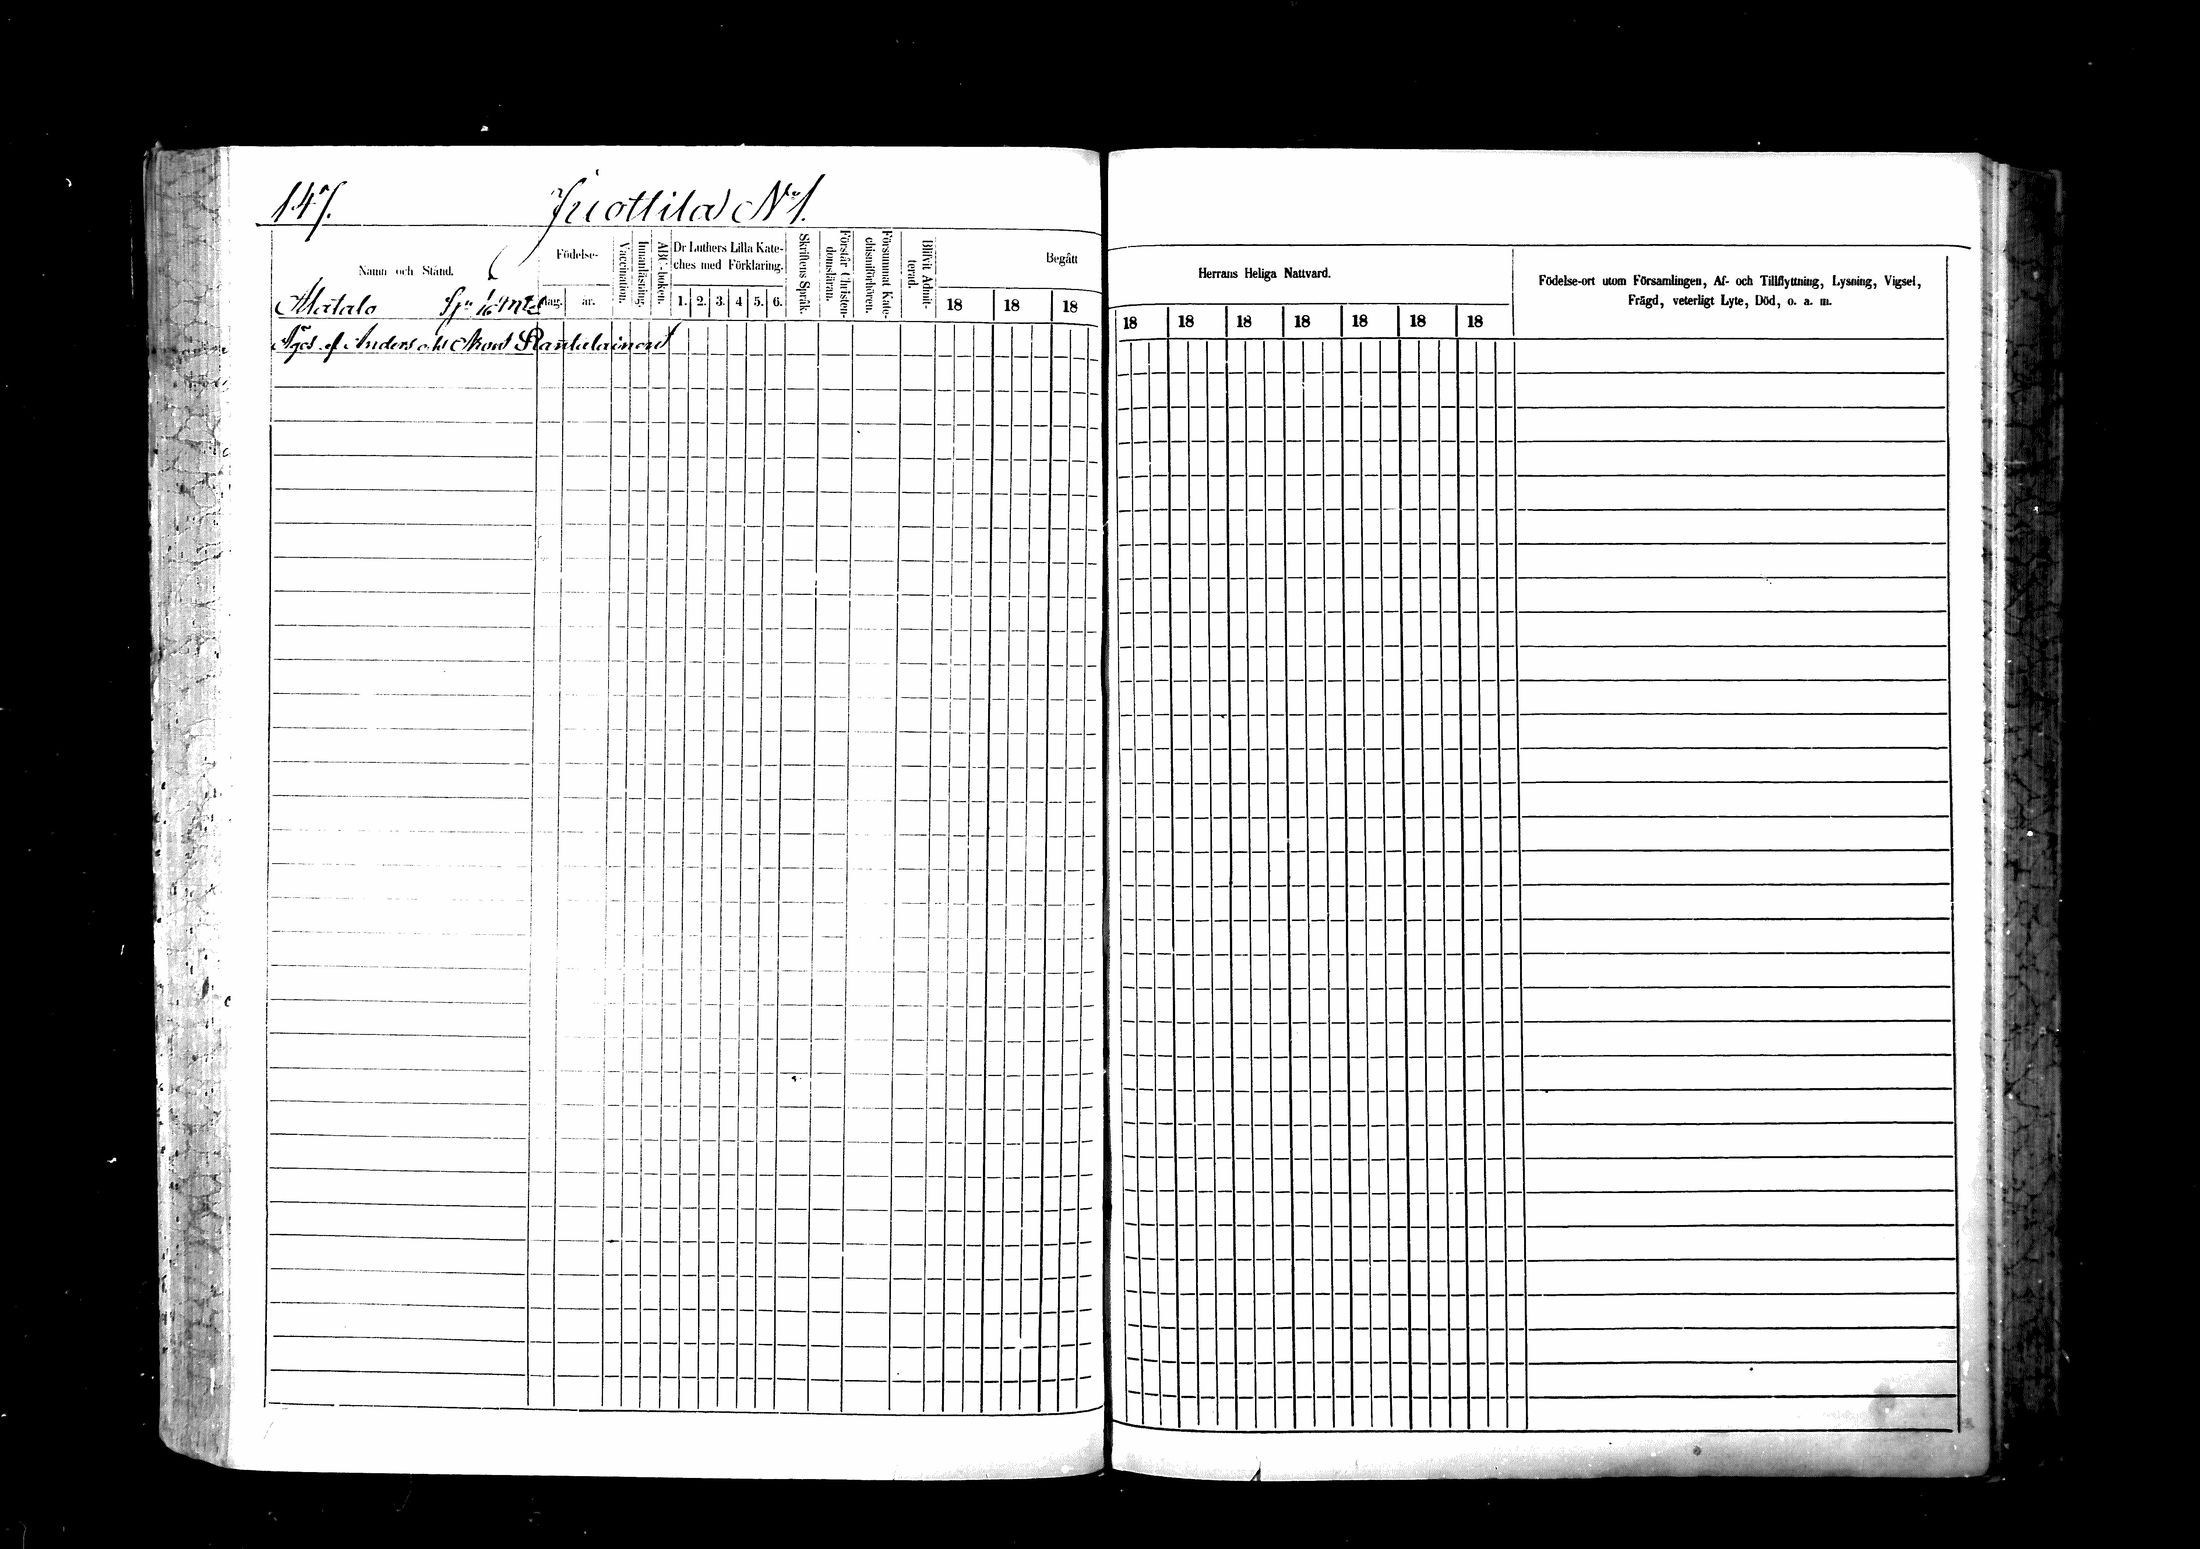 147. Juottila No 1.
Namn och Stånd.
Födelse-
dag. år.
Vaccination.
Innanläsning
ABC-boken.
Dr Luthers Lilla Kate-
ches med Förklaring.
1. 2. 3. 4 5. 6.
Skriftens Språk.
Förstår Christen-
domsläran.
Försummat Kate-
chismiförhören.
Blifvit Admit-
terad.
Begått
18 18 18
Alatalo
Äges af Anders och Rantalainen
Herrans Heliga Nattvard.
18 18 18 18 18 18 18
Födelse-ort utom Församlingen, Af- och Tillflyttning, Lysning, Vigsel,
Frägd, veterligt Lyte, Död, o. a. m.